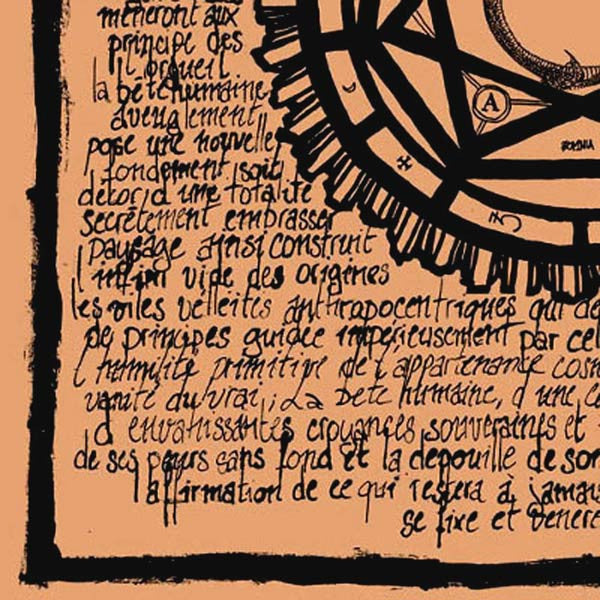 mèneront aux
principe des
l'orgueil
la bête humaine
aveuglement
pose une nouvelle
fondement soit
décor d'une totalité
secrètement embrasser
paysage ainsi construit
l'infini vide des origines
les viles velléités anthropocentriques qui de
de principes guidée impérieusement par cel
l'humilité primitive de l'appartenance cosm
vanité du vrai, ; La bête humaine, d'une, ce
d'envahissantes croyances souveraines et
de ses peurs sans fond et la dépouille de son
l'affirmation de ce qui restera à jamais
se fixe et vénére
A